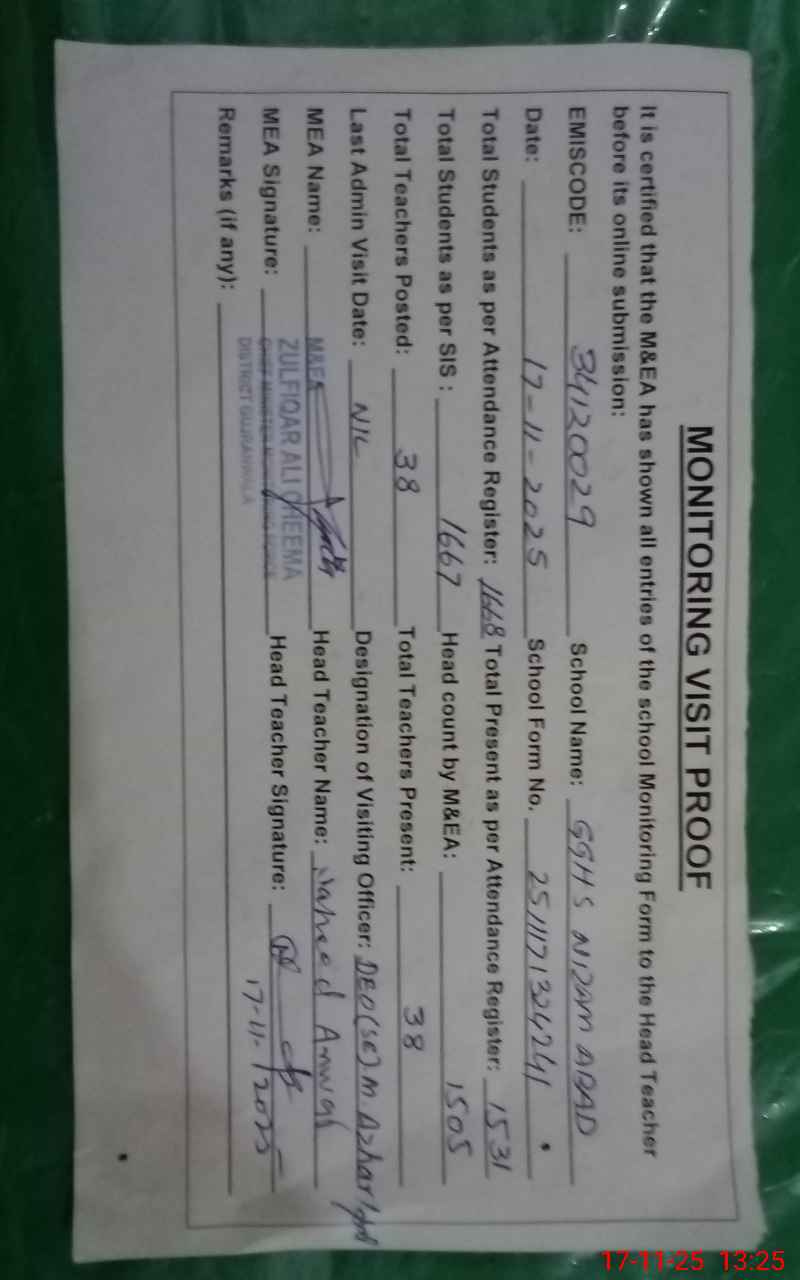 MONITORING VISIT PROOF
It is certified that the M&EA has shown all entries of the school Monitoring Form to the Head Teacher
before its online submission:
EMISCODE: 34120029 School Name: GGHS NIZAM ABAD
Date: 17-11-2025 School Form No. 2511171324241
Total Students as per Attendance Register: 1668 Total Present as per Attendance Register: 1531
Total Students as per SIS : 1667 Head count by M&EA: 1505
Total Teachers Posted: 38 Total Teachers Present: 38
Last Admin Visit Date: NIL Designation of Visiting Officer: DEO(SE) M. Azhar
MEA Name: Head Teacher Name:
M&EA
ZULFIQAR ALI CHEEMA
CHIEF MINISTER MONITORING FORCE
DISTRICT GUJRANWALA
MEA Signature: Head Teacher Signature:
17-11-2025
Remarks (if any):
17-11-25 13:25